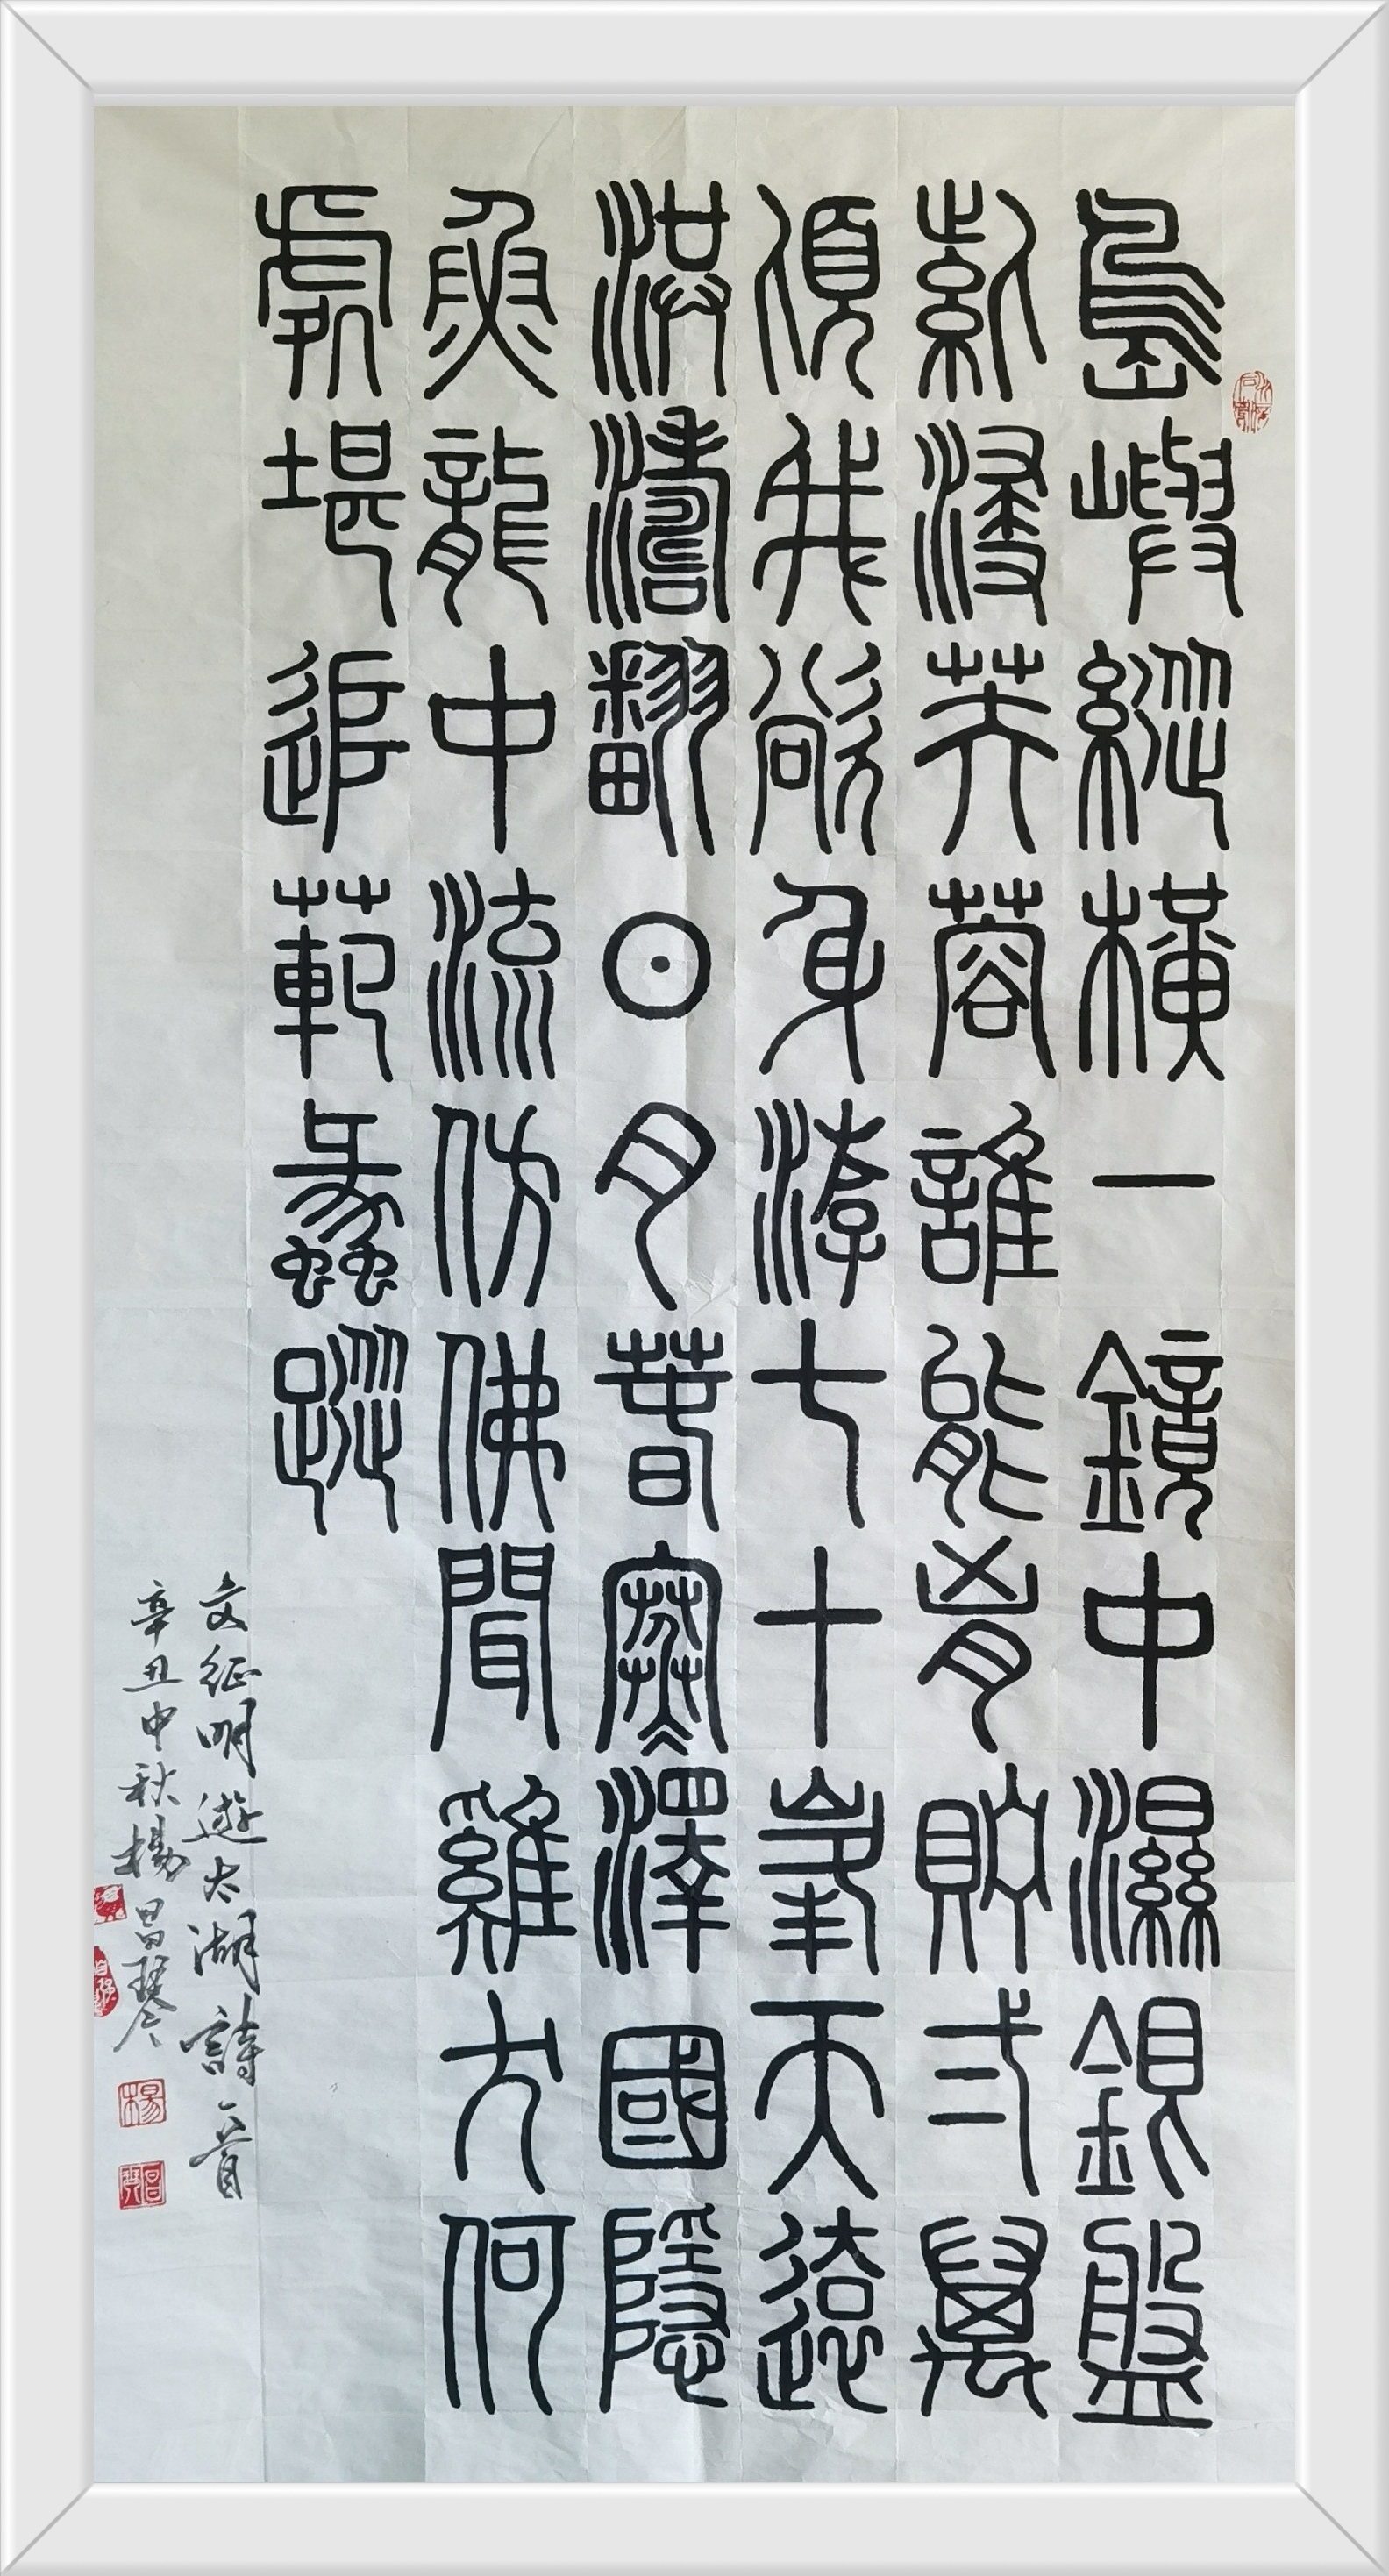 島嶼縱橫一鏡中濕銀盤
紫浸芙蓉誰能胷貯弎萬
頃我欲身游七十峯天遠
洪濤翻日月春寒澤國隱
魚龍中流仿佛聞雞犬何
處堪追範蠡蹤
文征明遊太湖詩一首
辛丑中秋楊昌琴
楊